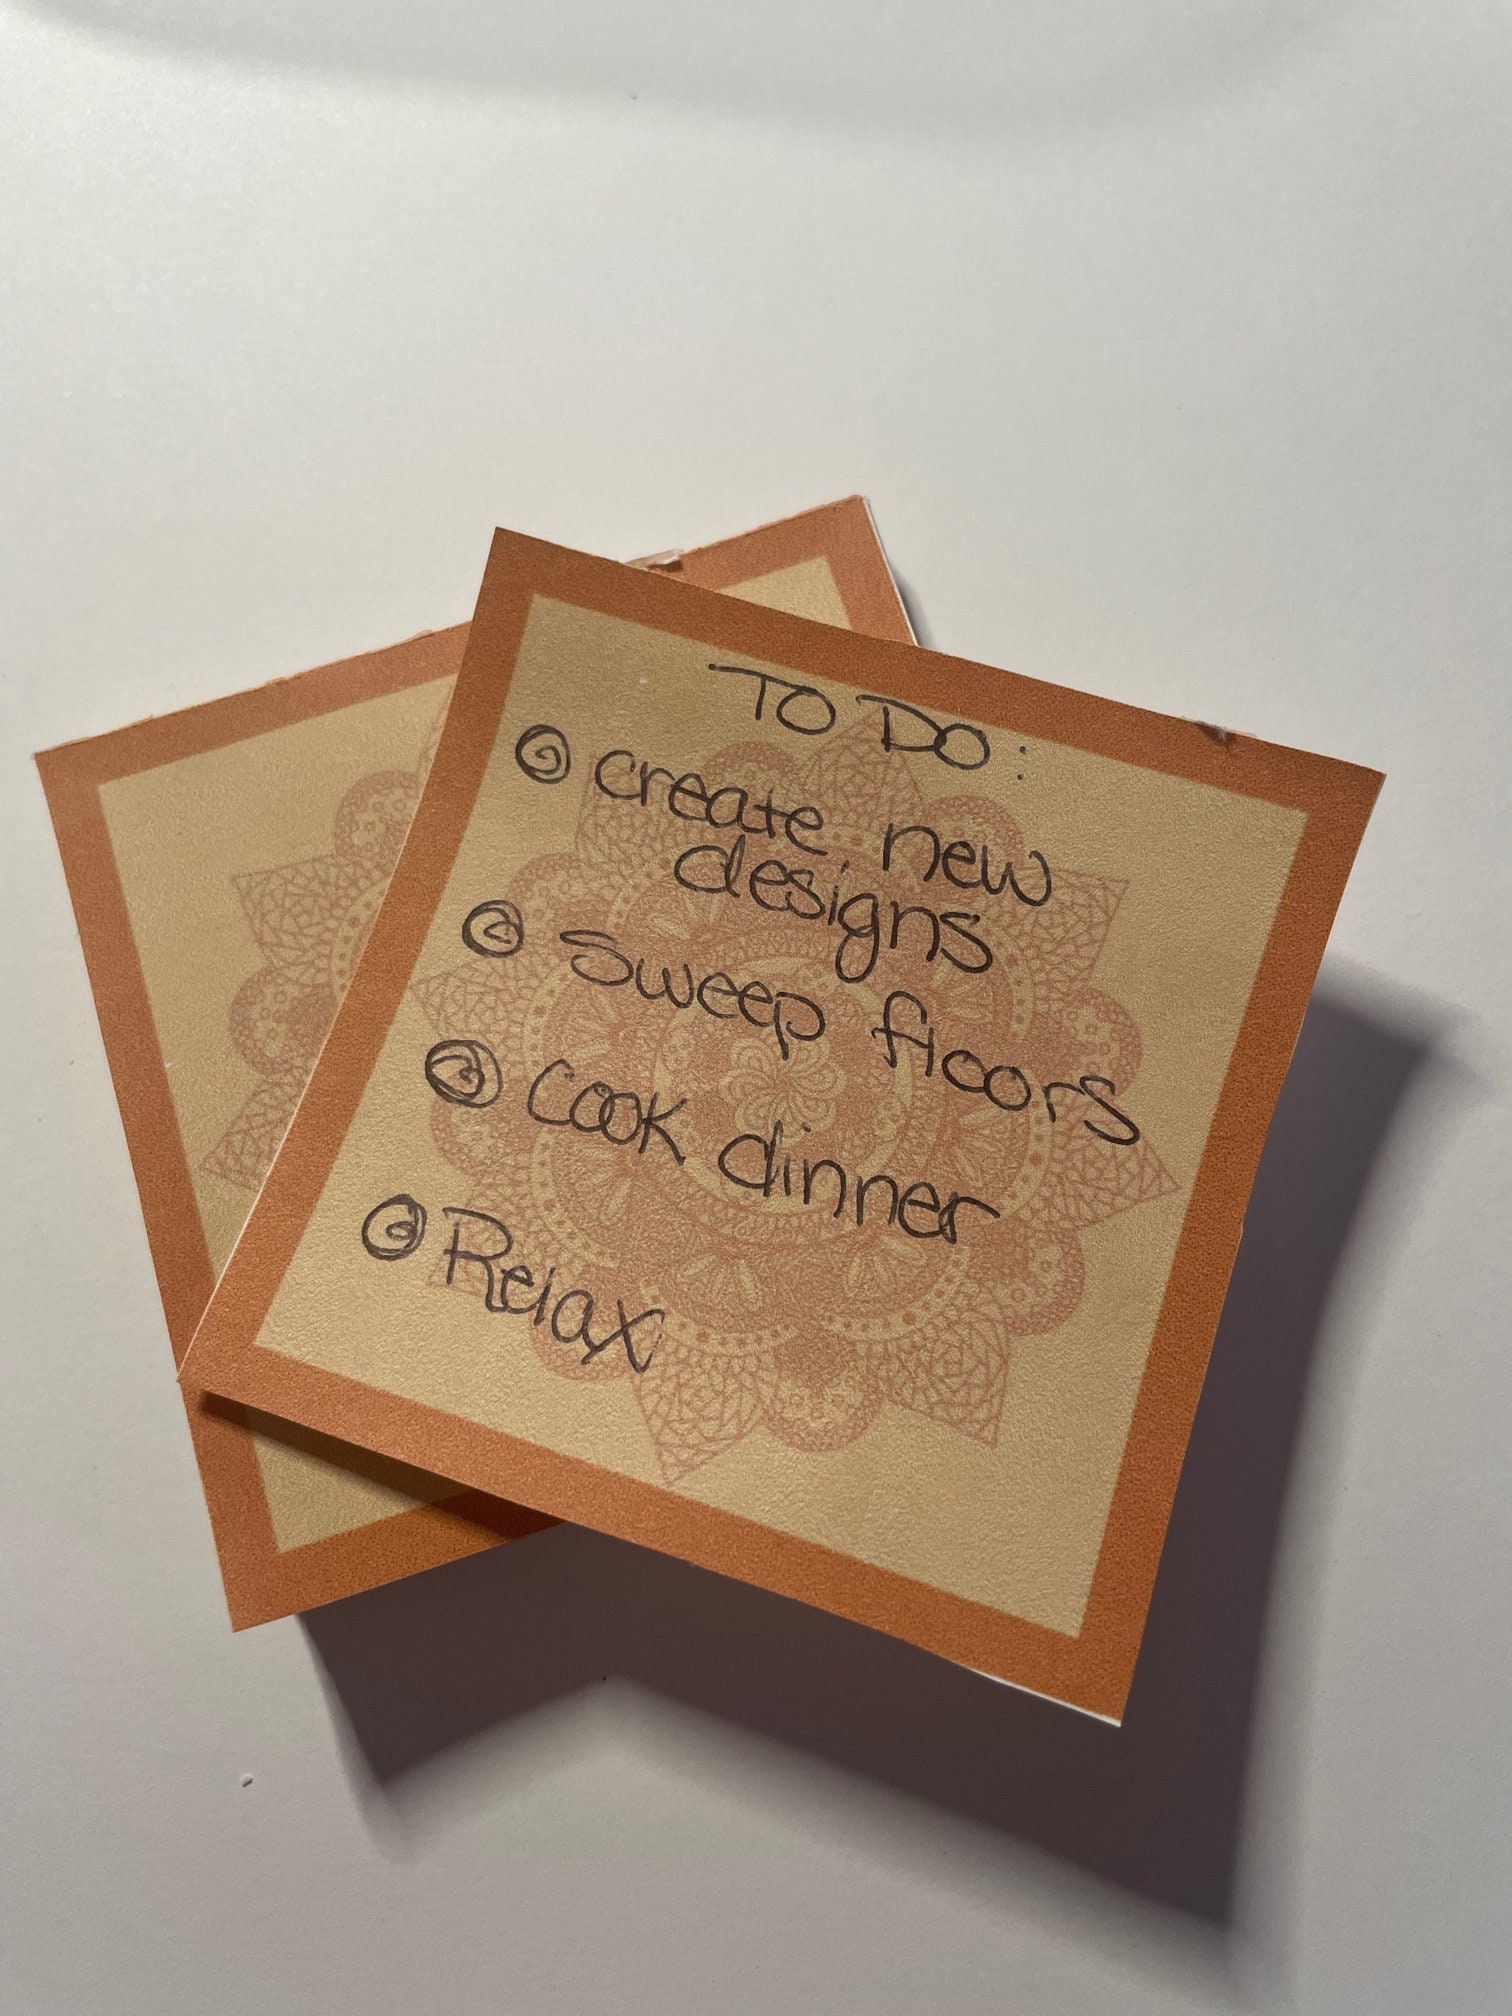 TO DO:
create new
designs
Sweep floors
cook dinner
Relax